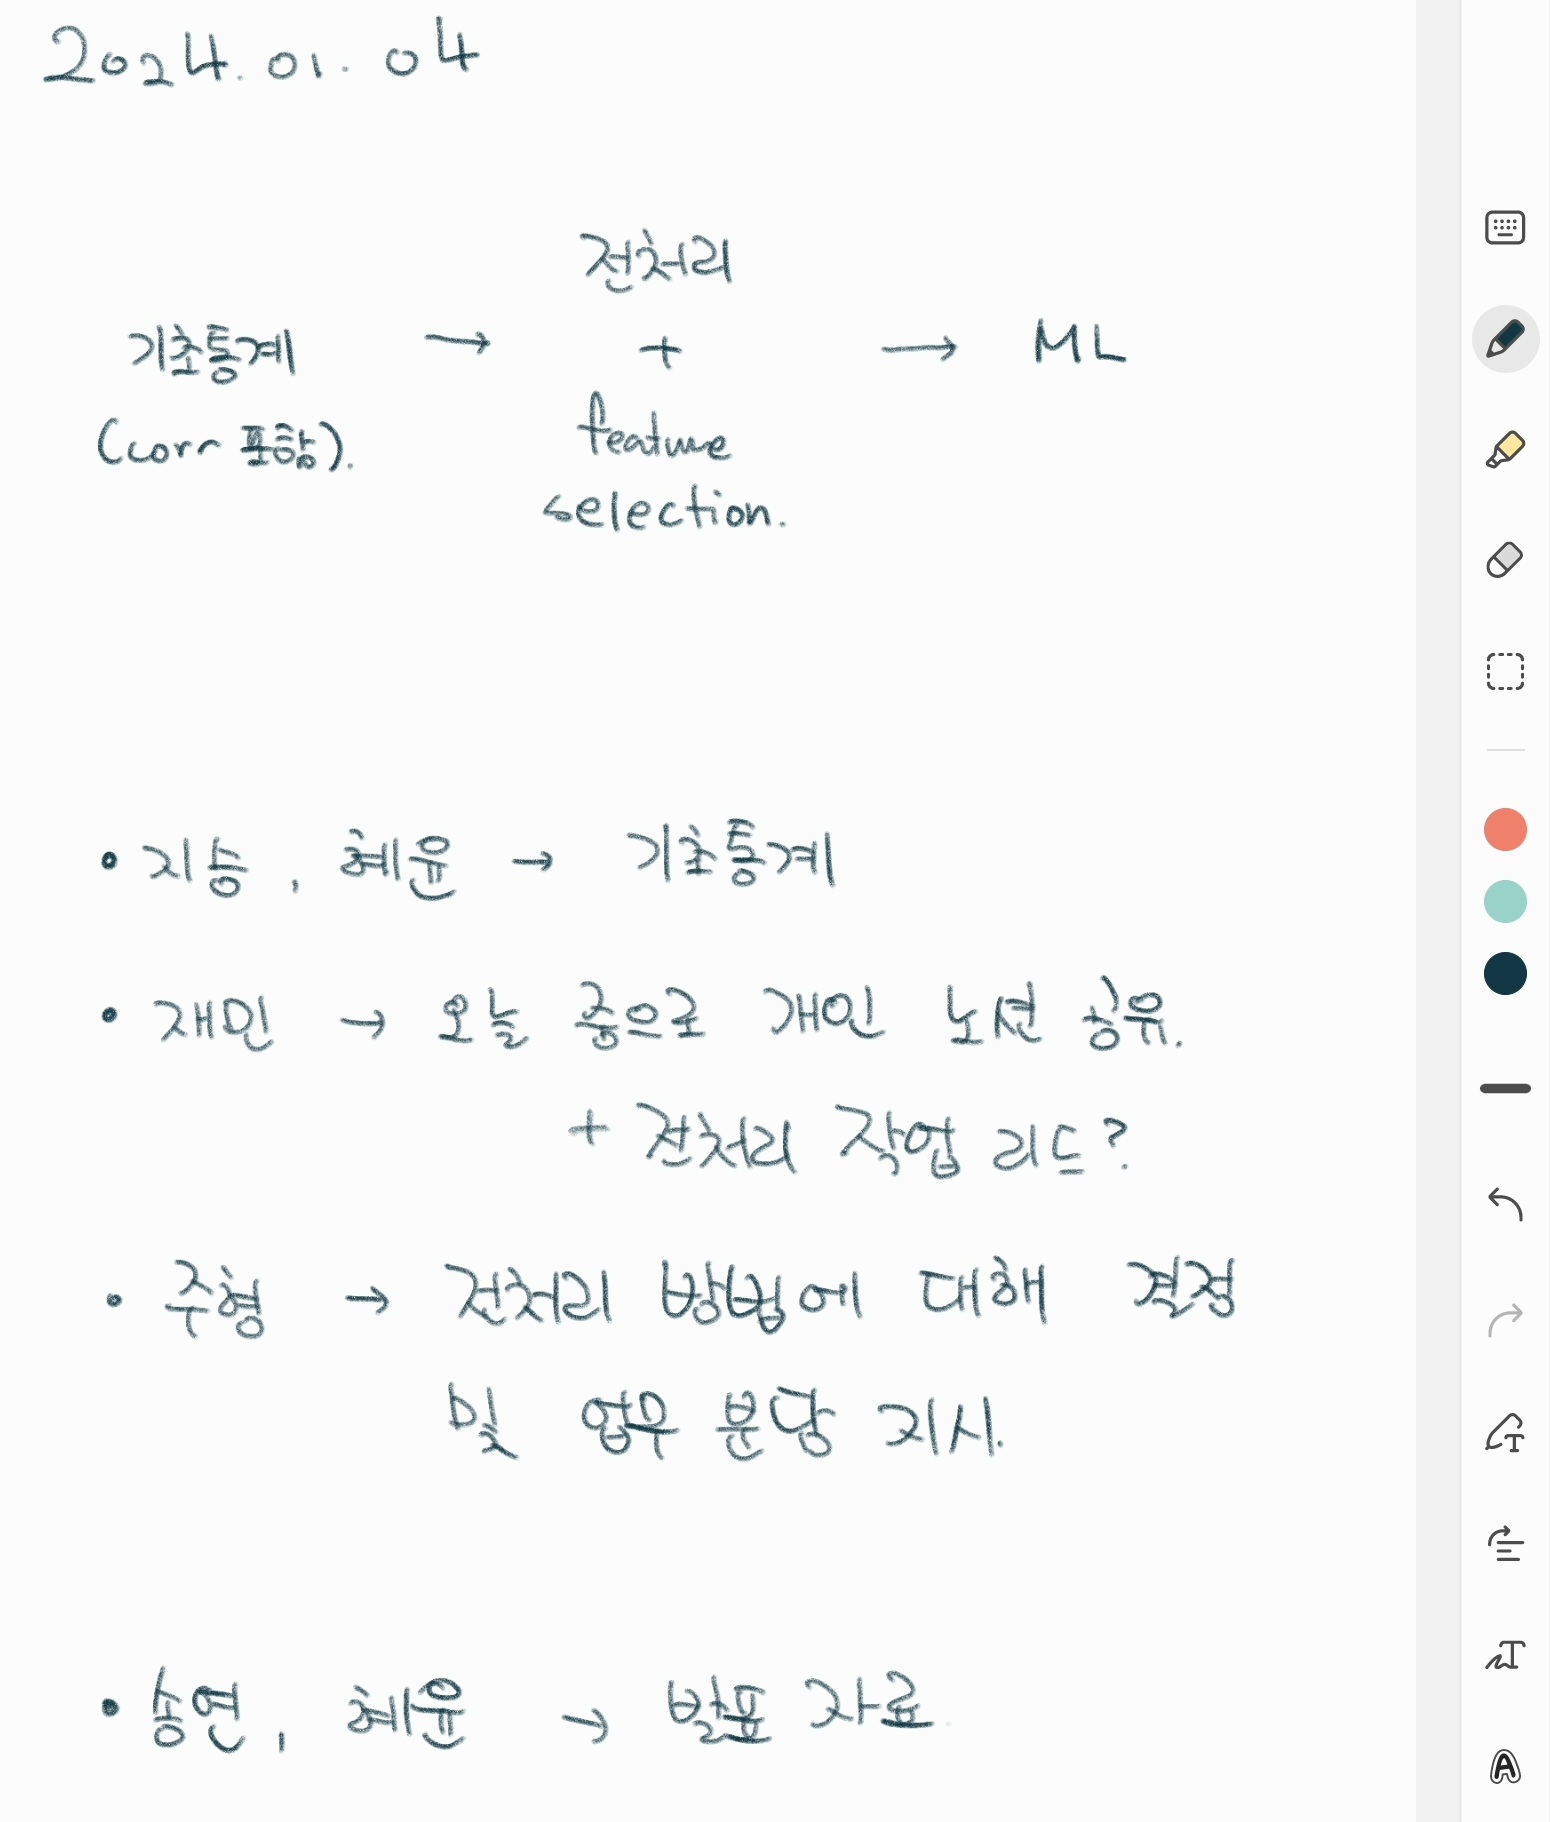 2024. 01. 04
전처리
기초통계 → + → ML
(corr 포함). feature
selection.
• 지승, 혜윤 → 기초통계
• 재민 → 오늘 중으로 개인 노션 공유.
+ 전처리 작업 리드?
• 주형 → 전처리 방법에 대해 결정
및 업무 분담 지시.
• 송연, 혜윤 → 발표 자료.